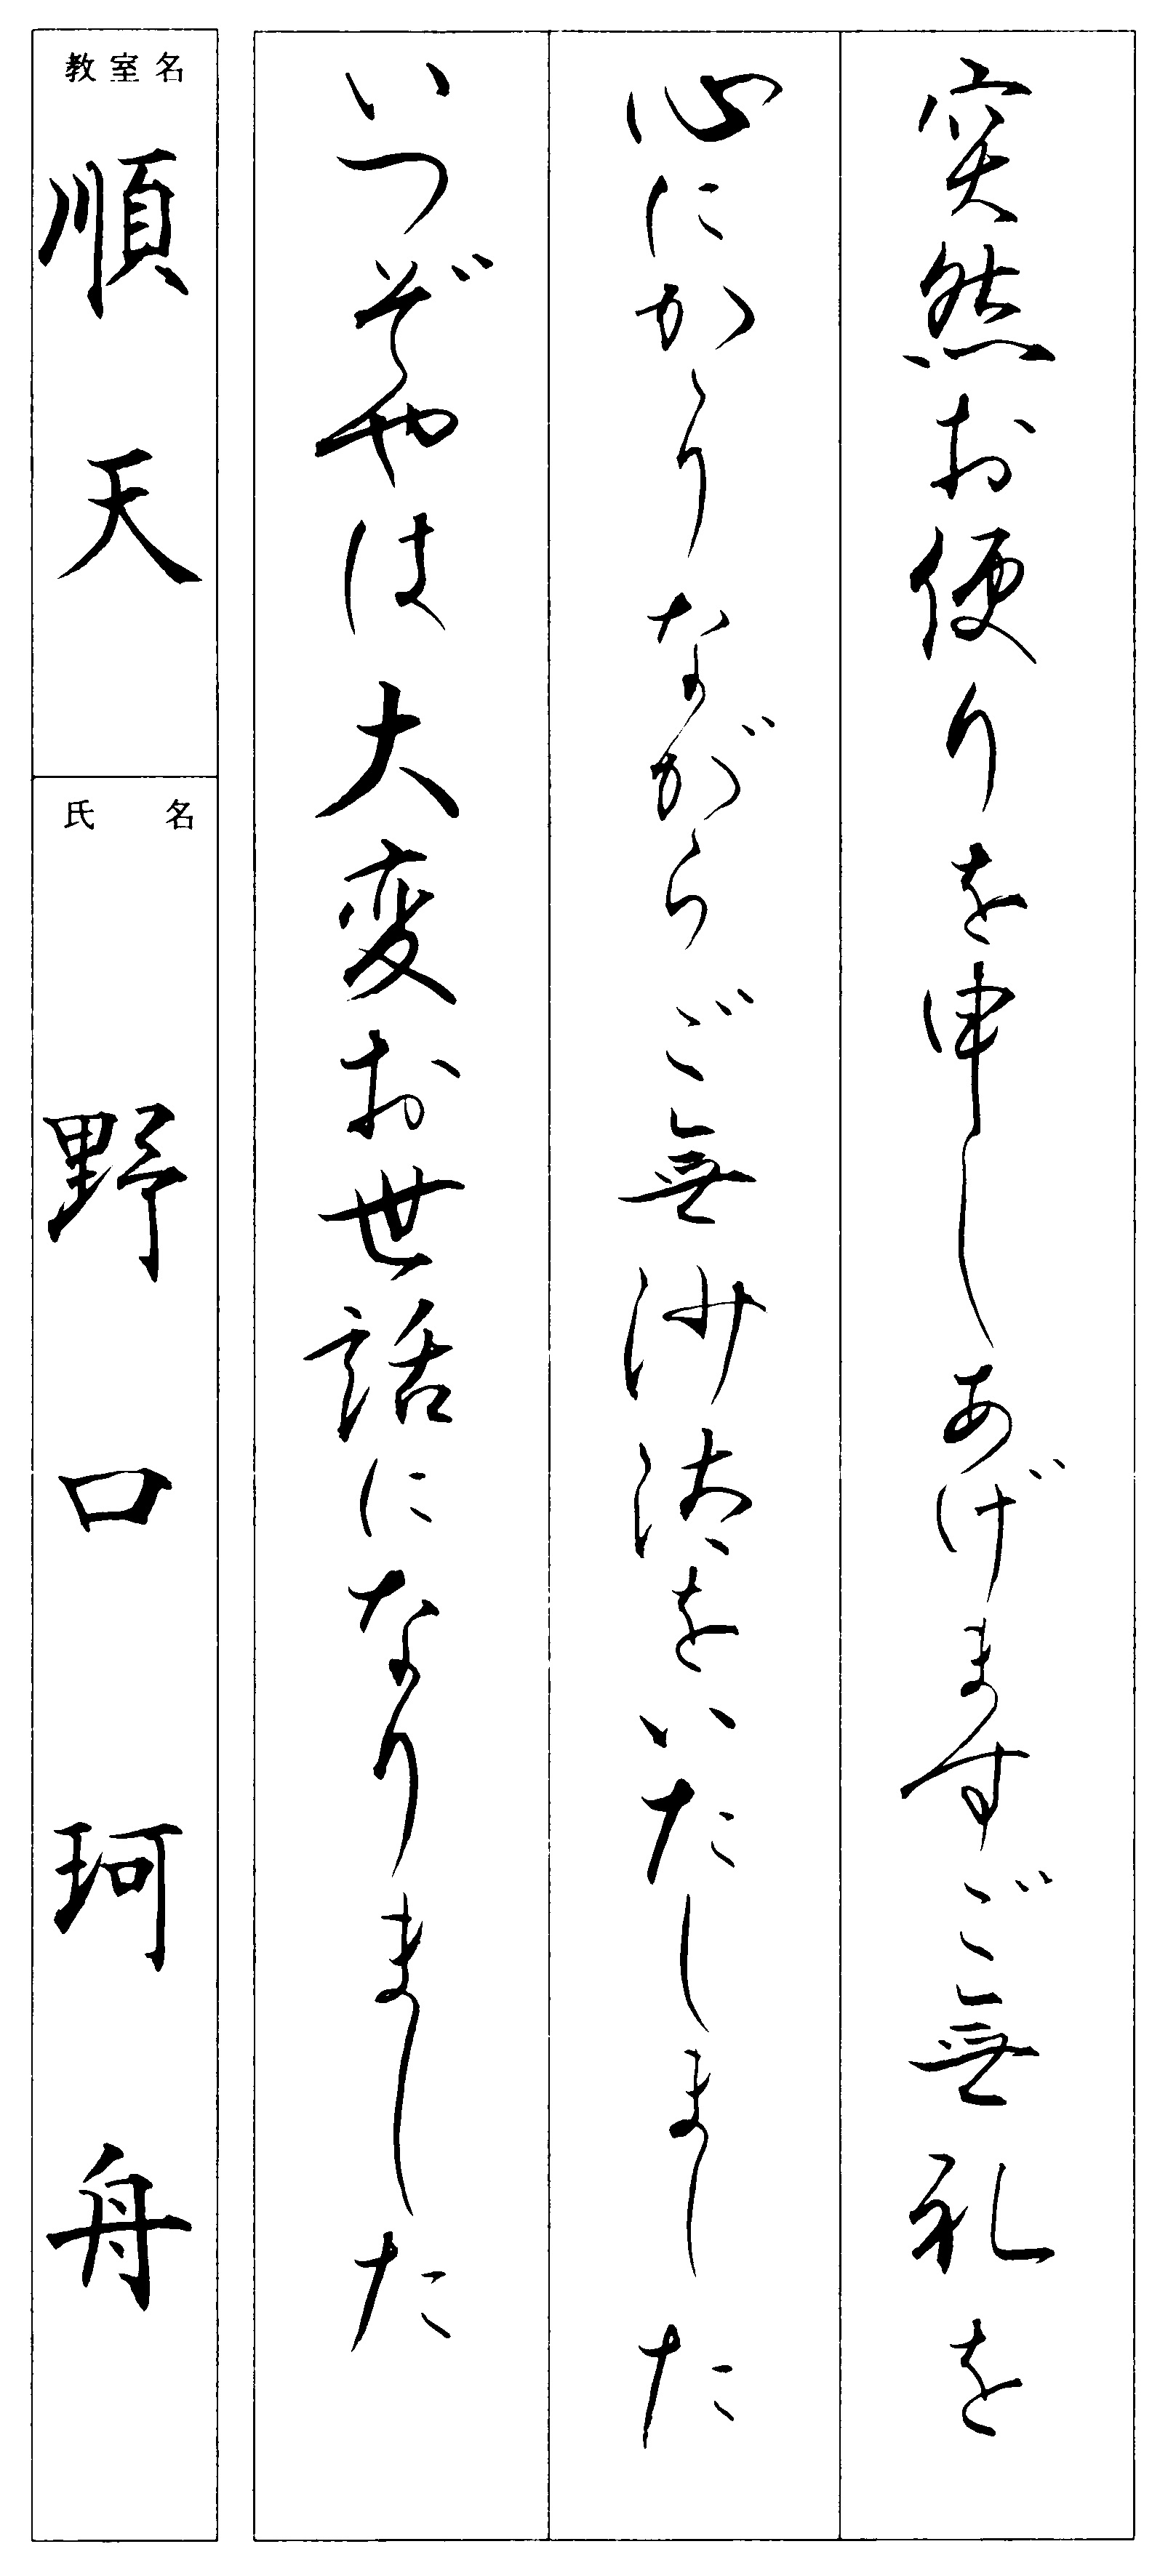 突然お便りを申しあげますご無礼を
心にかかりながらご無沙汰をいたしました
いつぞやは大変お世話になりました
教室名
順天
氏名
野口珂舟